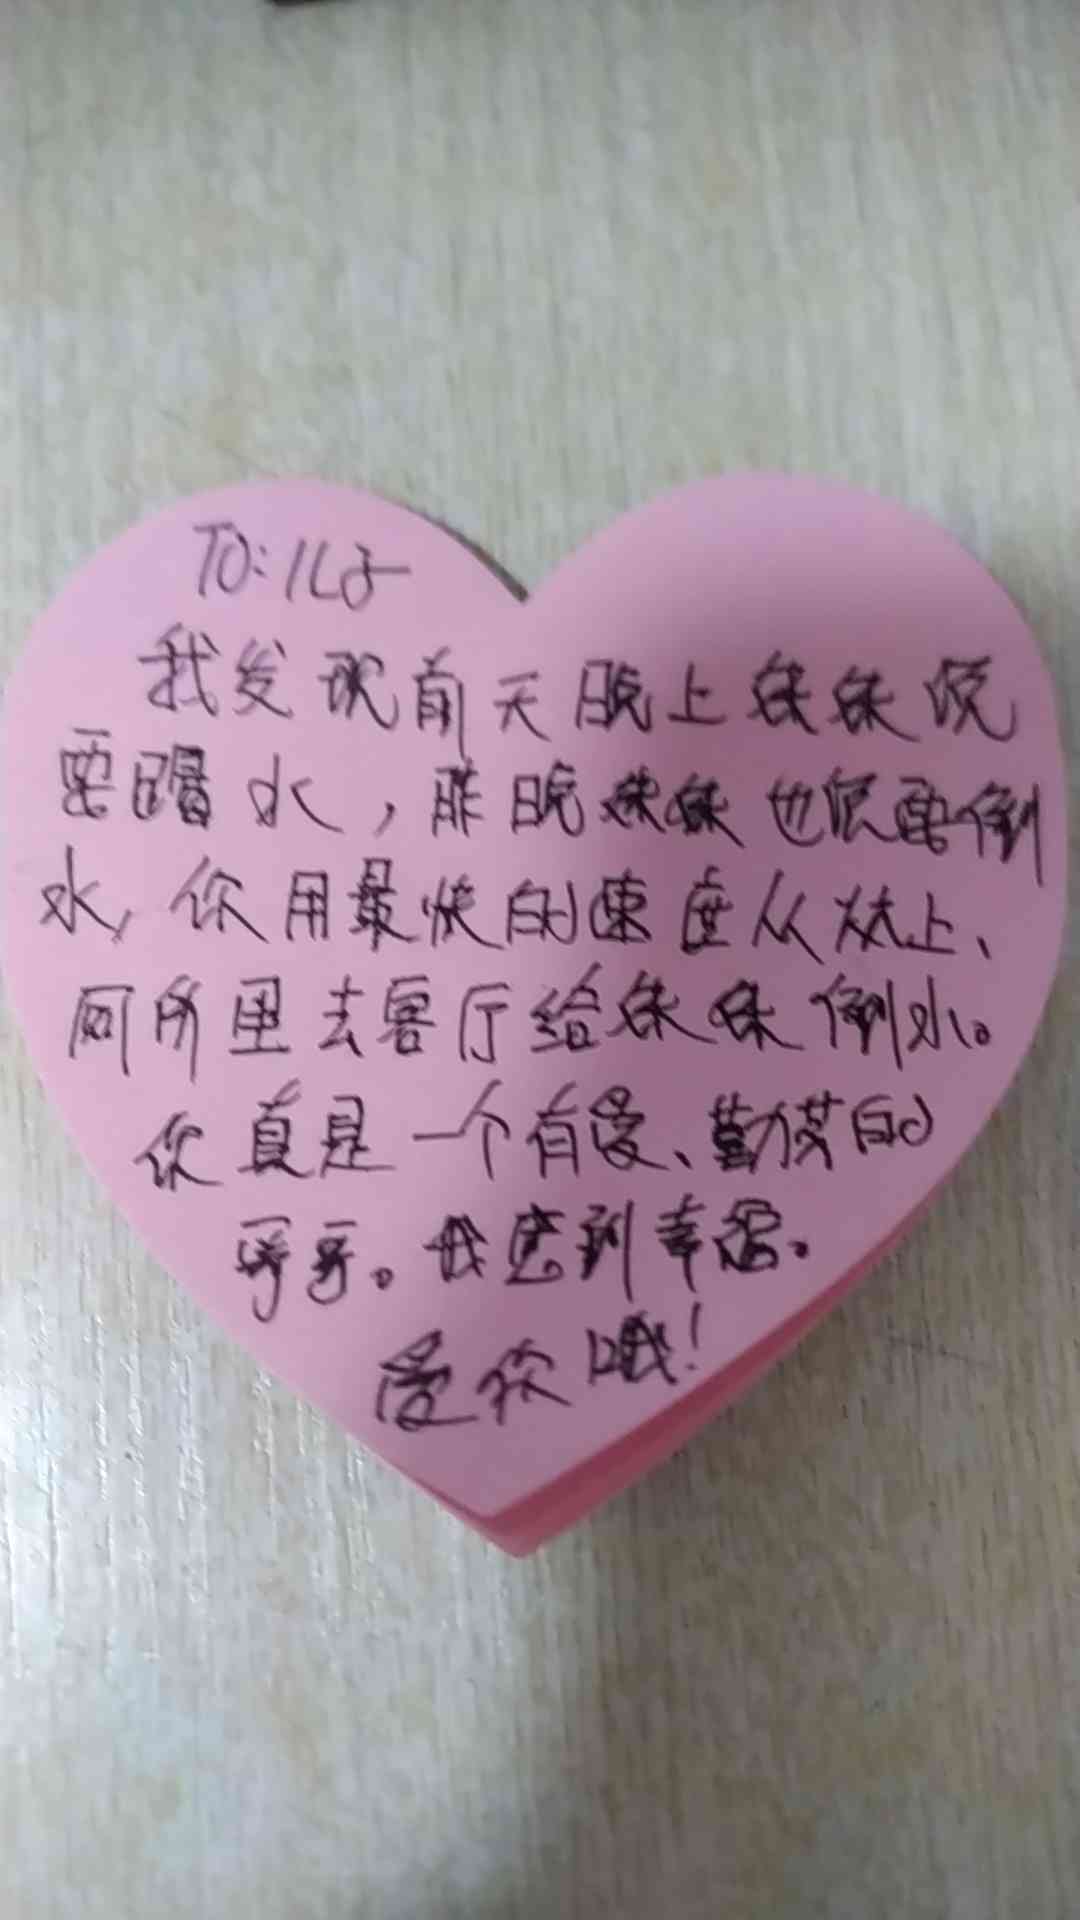 TO:儿子
我发现前天晚上妹妹说
要喝水,昨晚妹妹也说要倒
水,你用最快的速度从床上、
厕所里去客厅给妹妹倒水。
你真是一个有爱、勤劳的
哥哥。我感到幸福。
爱你哦!